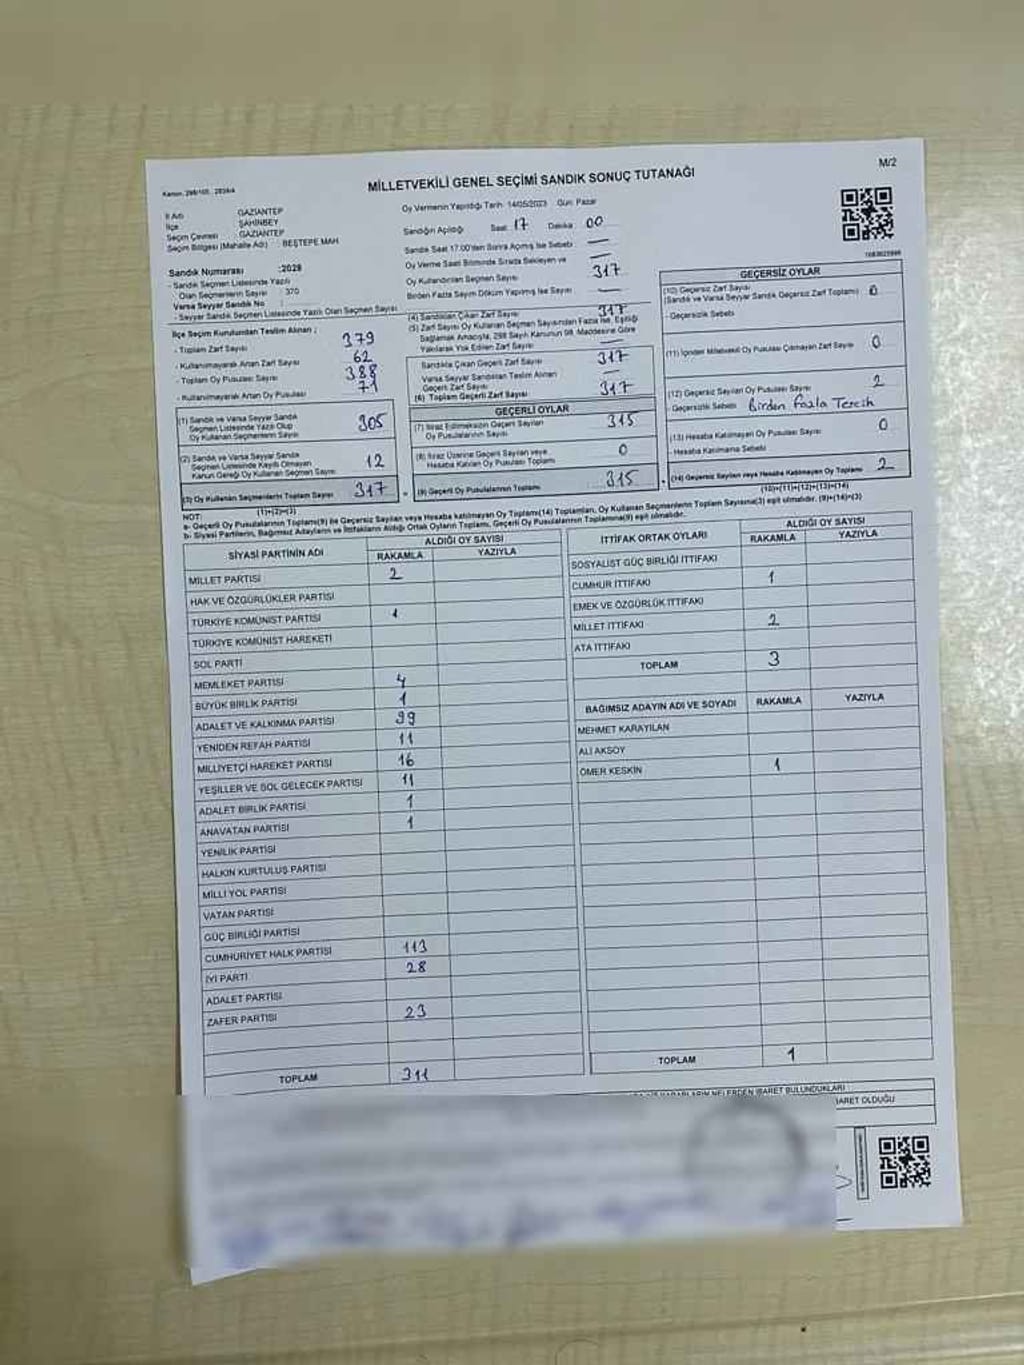 M/2
Kanun: 298/105, 2839/4
MİLLETVEKİLİ GENEL SEÇİMİ SANDIK SONUÇ TUTANAĞI
İl Adı GAZİANTEP
İlçe ŞAHİNBEY
Seçim Çevresi GAZİANTEP
Seçim Bölgesi (Mahalle Adı) BEŞTEPE MAH.
Sandık Numarası :2028
- Sandık Seçmen Listesinde Yazılı
Olan Seçmenlerin Sayısı : 370
Varsa Seyyar Sandık No :
- Seyyar Sandık Seçmen Listesinde Yazılı Olan Seçmen Sayısı
Oy Vermenin Yapıldığı Tarih: 14/05/2023 Gün: Pazar
Sandığın Açıldığı Saat 17 Dakika 00
Sandık Saat 17:00'den Sonra Açılmış İse Sebebi —
Oy Verme Saati Bitiminde Sırada Bekleyen ve
Oy Kullandırılan Seçmen Sayısı 317
Birden Fazla Sayım Döküm Yapılmış İse Sayısı —
İlçe Seçim Kurulundan Teslim Alınan ;
- Toplam Zarf Sayısı 379
- Kullanılmayarak Artan Zarf Sayısı 62
- Toplam Oy Pusulası Sayısı 388
- Kullanılmayarak Artan Oy Pusulası 71
(1) Sandık ve Varsa Seyyar Sandık
Seçmen Listesinde Yazılı Olup
Oy Kullanan Seçmenlerin Sayısı 305
(2) Sandık ve Varsa Seyyar Sandık
Seçmen Listesinde Kayıtlı Olmayan
Kanun Gereği Oy Kullanan Seçmen Sayısı 12
(3) Oy Kullanan Seçmenlerin Toplam Sayısı 317
(1)+(2)=(3)
(4) Sandıktan Çıkan Zarf Sayısı 317
(5) Zarf Sayısı Oy Kullanan Seçmen Sayısından Fazla İse, Eşitliği
Sağlamak Amacıyla, 298 Sayılı Kanunun 98. Maddesine Göre
Yakılarak Yok Edilen Zarf Sayısı —
Sandıkta Çıkan Geçerli Zarf Sayısı 317
Varsa Seyyar Sandıktan Teslim Alınan
Geçerli Zarf Sayısı —
(6) Toplam Geçerli Zarf Sayısı 317
GEÇERLİ OYLAR
(7) İtiraz Edilmeksizin Geçerli Sayılan
Oy Pusulalarının Sayısı 315
(8) İtiraz Üzerine Geçerli Sayılan veya
Hesaba Katılan Oy Pusulası Toplamı 0
(9) Geçerli Oy Pusulalarının Toplamı 315
GEÇERSİZ OYLAR
(10) Geçersiz Zarf Sayısı
(Sandık ve Varsa Seyyar Sandık Geçersiz Zarf Toplamı) 0
- Geçersizlik Sebebi
(11) İçinden Milletvekili Oy Pusulası Çıkmayan Zarf Sayısı 0
(12) Geçersiz Sayılan Oy Pusulası Sayısı 2
- Geçersizlik Sebebi Birden Fazla Tercih
(13) Hesaba Katılmayan Oy Pusulası Sayısı 0
- Hesaba Katılmama Sebebi
(14) Geçersiz Sayılan veya Hesaba Katılmayan Oy Toplamı 2
(10)+(11)+(12)+(13)=(14)
NOT:
a- Geçerli Oy Pusulalarının Toplamı(9) ile Geçersiz Sayılan veya Hesaba katılmayan Oy Toplamı(14) Toplamları, Oy Kullanan Seçmenlerin Toplam Sayısına(3) eşit olmalıdır. (9)+(14)=(3)
b- Siyasi Partilerin, Bağımsız Adayların ve İttifakların Aldığı Ortak Oyların Toplamı, Geçerli Oy Pusulalarının Toplamına(9) eşit olmalıdır.
SİYASİ PARTİNİN ADI ALDIĞI OY SAYISI
RAKAMLA YAZIYLA
MİLLET PARTİSİ 2
HAK VE ÖZGÜRLÜKLER PARTİSİ
TÜRKİYE KOMÜNİST PARTİSİ 1
TÜRKİYE KOMÜNİST HAREKETİ
SOL PARTİ
MEMLEKET PARTİSİ 4
BÜYÜK BİRLİK PARTİSİ 1
ADALET VE KALKINMA PARTİSİ 99
YENİDEN REFAH PARTİSİ 11
MİLLİYETÇİ HAREKET PARTİSİ 16
YEŞİLLER VE SOL GELECEK PARTİSİ 11
ADALET BİRLİK PARTİSİ 1
ANAVATAN PARTİSİ 1
YENİLİK PARTİSİ
HALKIN KURTULUŞ PARTİSİ
MİLLİ YOL PARTİSİ
VATAN PARTİSİ
GÜÇ BİRLİĞİ PARTİSİ
CUMHURİYET HALK PARTİSİ 113
İYİ PARTİ 28
ADALET PARTİSİ
ZAFER PARTİSİ 23
TOPLAM 311
İTTİFAK ORTAK OYLARI ALDIĞI OY SAYISI
RAKAMLA YAZIYLA
SOSYALİST GÜÇ BİRLİĞİ İTTİFAKI
CUMHUR İTTİFAKI 1
EMEK VE ÖZGÜRLÜK İTTİFAKI
MİLLET İTTİFAKI 2
ATA İTTİFAKI
TOPLAM 3
BAĞIMSIZ ADAYIN ADI VE SOYADI RAKAMLA YAZIYLA
MEHMET KARAYILAN
ALİ AKSOY
ÖMER KESKİN 1
TOPLAM 1
KARARLARIN NELERDEN İBARET BULUNDUKLARI :
İBARET OLDUĞU